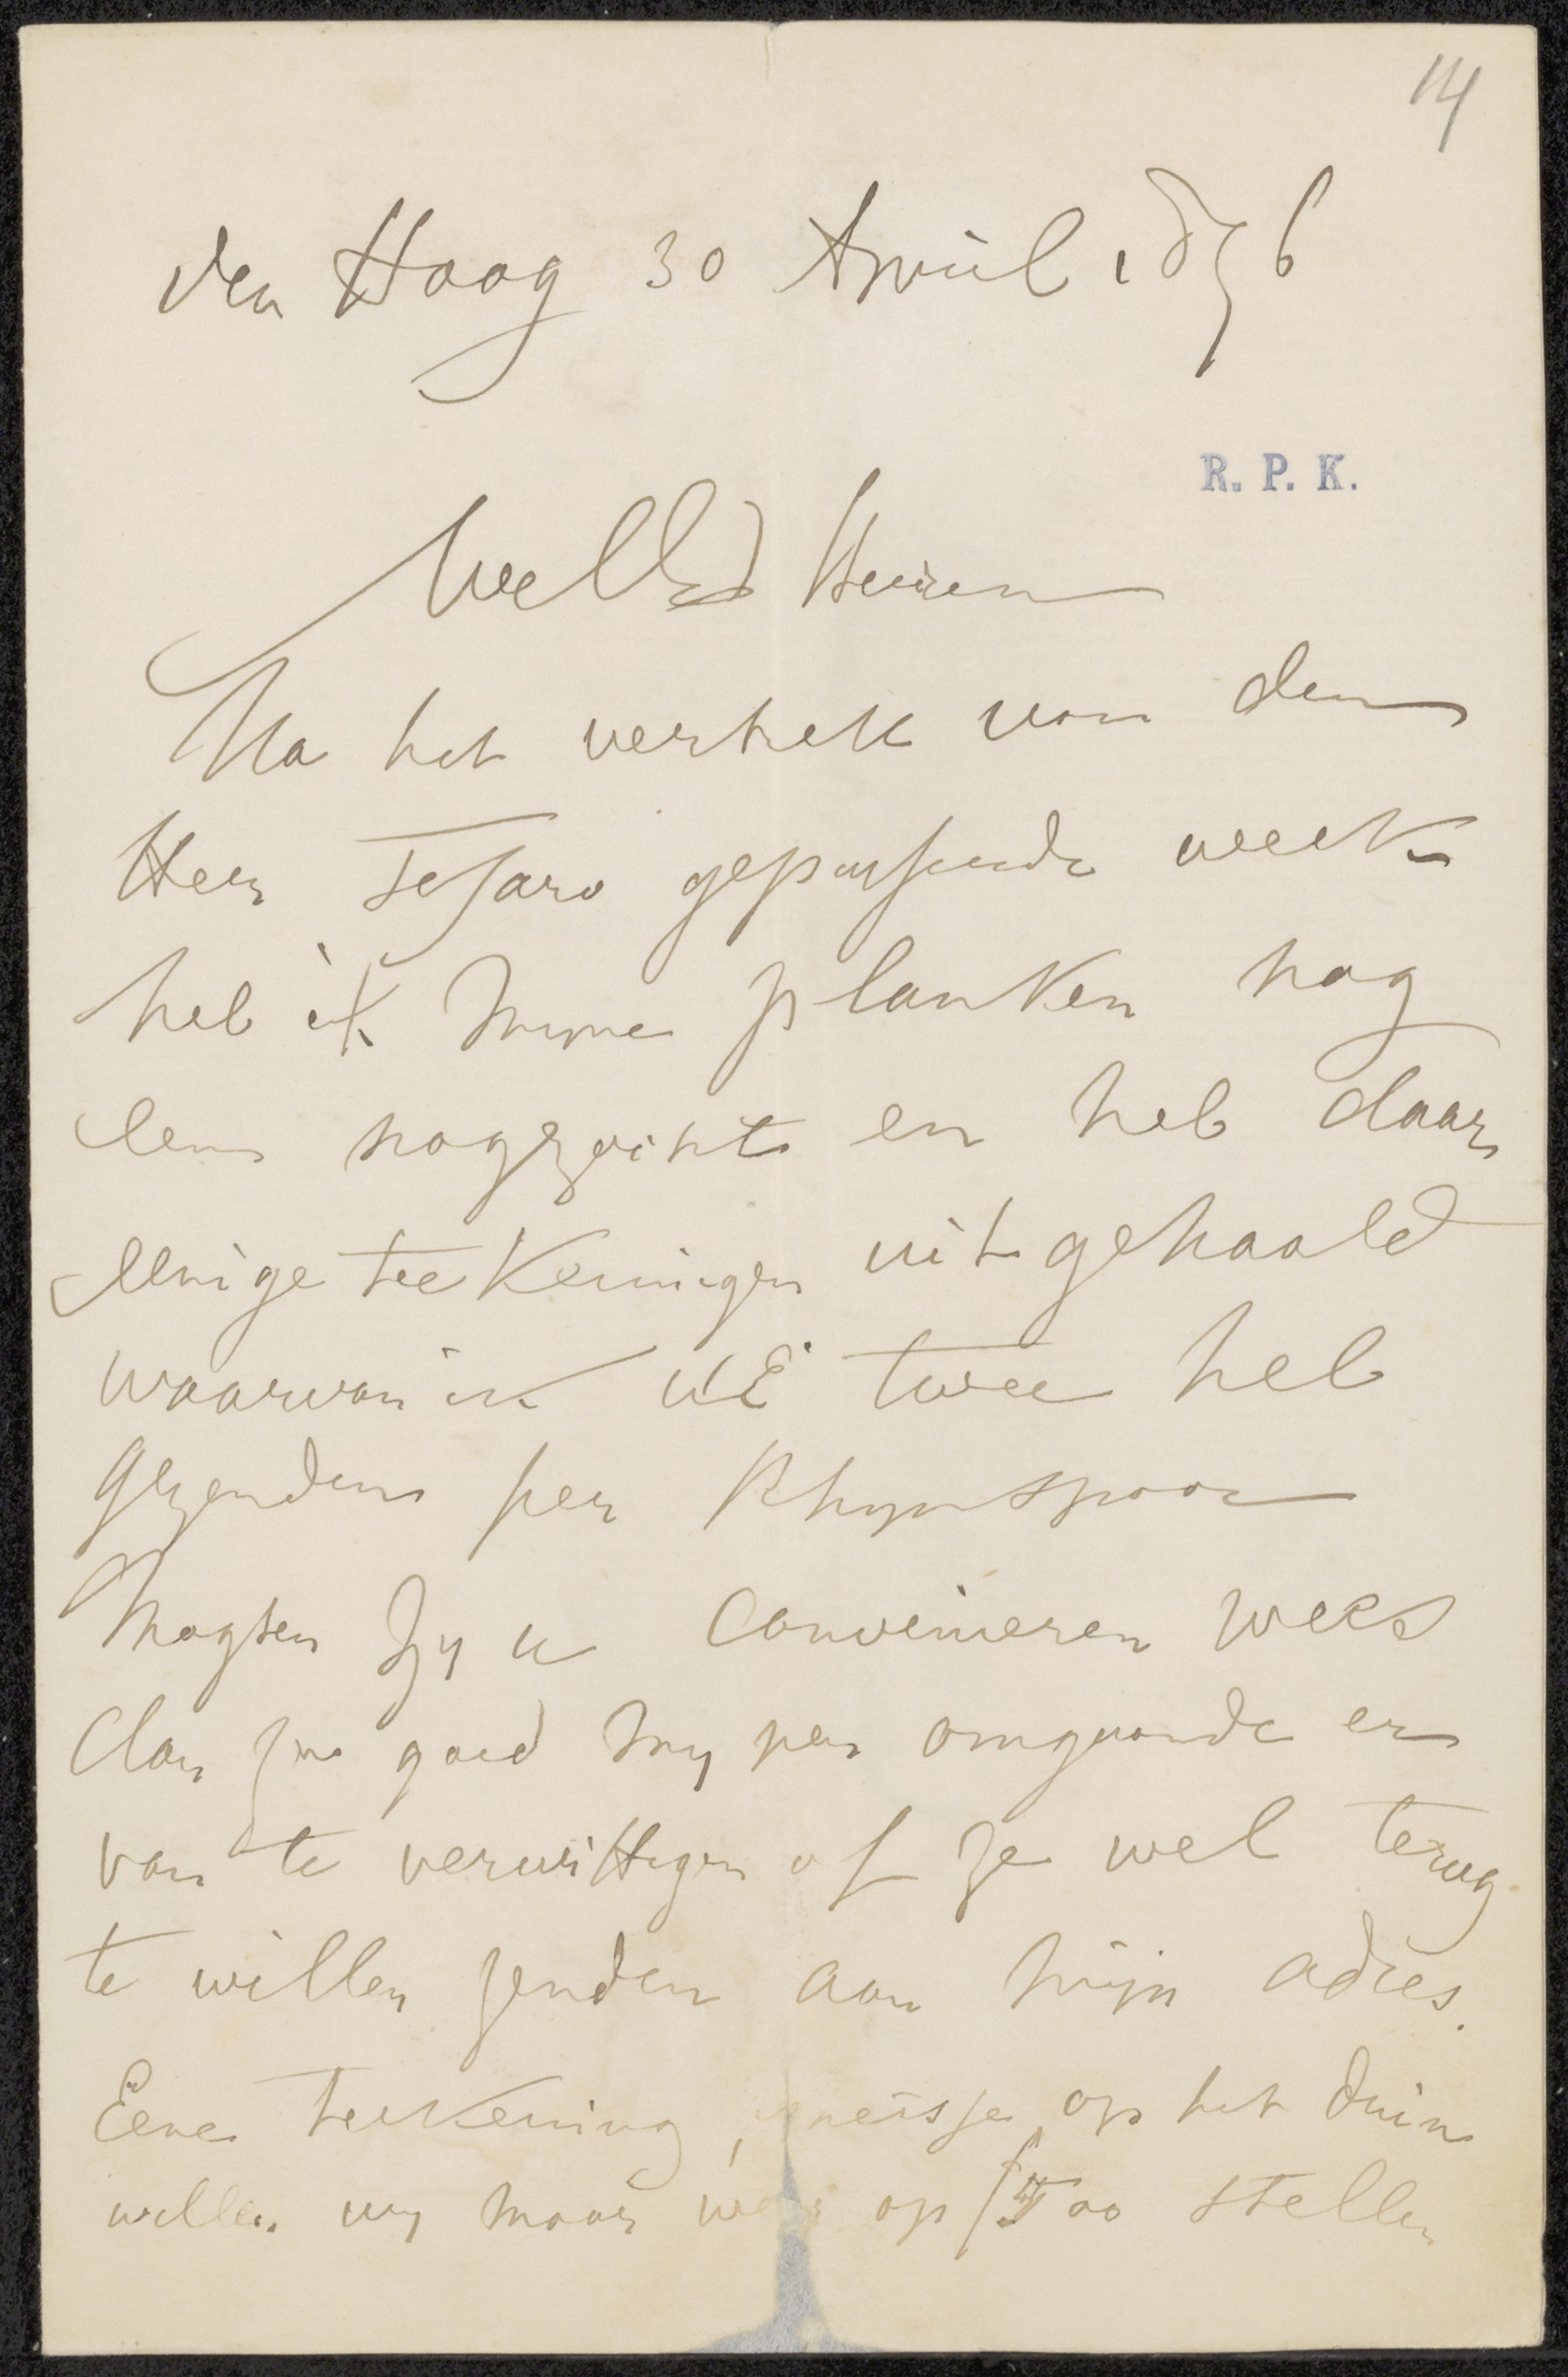 14
den Haag 30 April 1896
R. P. K.
WelEd Heeren
Na het vertrek van den
Heer Tessaro gepasseerde week
heb ik myne planken nog
eens nagezocht en heb daar
eenige teekeningen uitgehaald
waarvan ik UE twee heb
gezonden per Rhynspoor
Mogten zy u convenieren wees
dan zoo goed my per omgaande er
van te verwittigen of ze wel terug
te willen zenden aan mijn adres.
Eene teekening, meisje op het duin
willen wy maar op f 400 stellen